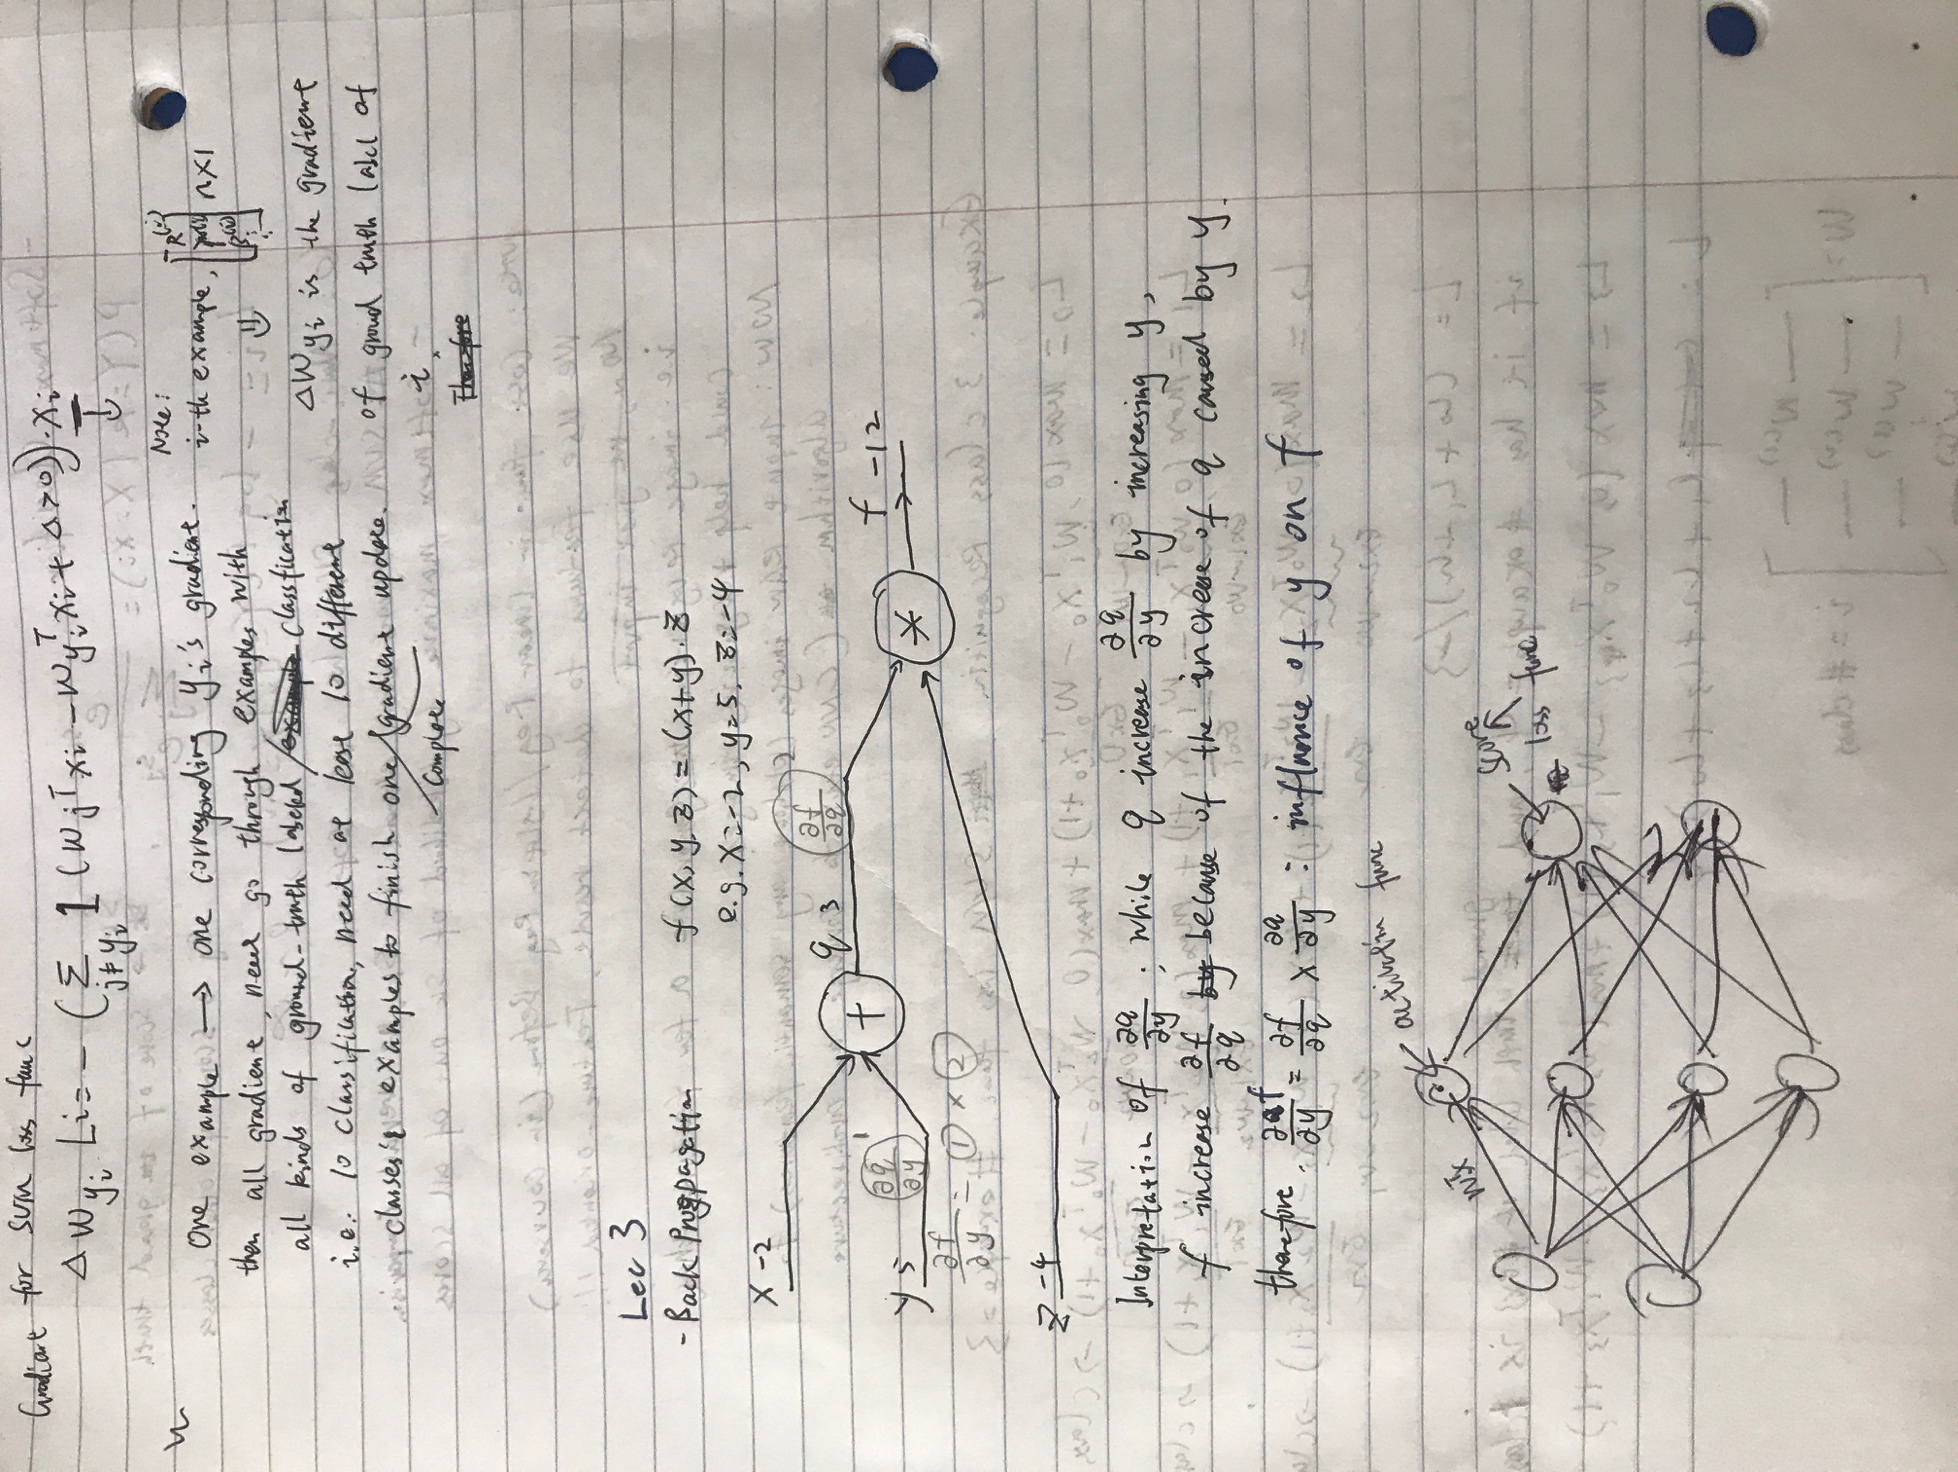 Gradiant for SVM loss func
Δ W yi Li = - ( Σ j≠yi 1 (WjᵀXi - WyiᵀXi + Δ > 0)) · Xi
Note:
i-th example, n×1
One example → one corresponding yi's gradient.
then all gradient, need go through examples with
all kinds of ground-truth labeled classfication
i.e.: 10 classification, need at least 10 different
classes's examples to finish one gradient update.
complete
ΔWyi is the gradient
of groud truth label of
i,
Therefore
Lec 3
- Back Propagation
f(x, y, z) = (x+y)·z
e.g. x=-2, y=5, z=-4
x -2
∂f/∂q
q 3
+
*
f -12
∂q/∂y
y 5
∂f/∂y = ① × ②
z -4
Interpretation of ∂q/∂y : while q increase ∂q/∂y by increasing y,
f increase ∂f/∂q by because of the increase of q caused by y.
therefore, ∂f/∂y = ∂f/∂q × ∂q/∂y : influence of y on f
activation func
Wx
score
loss func